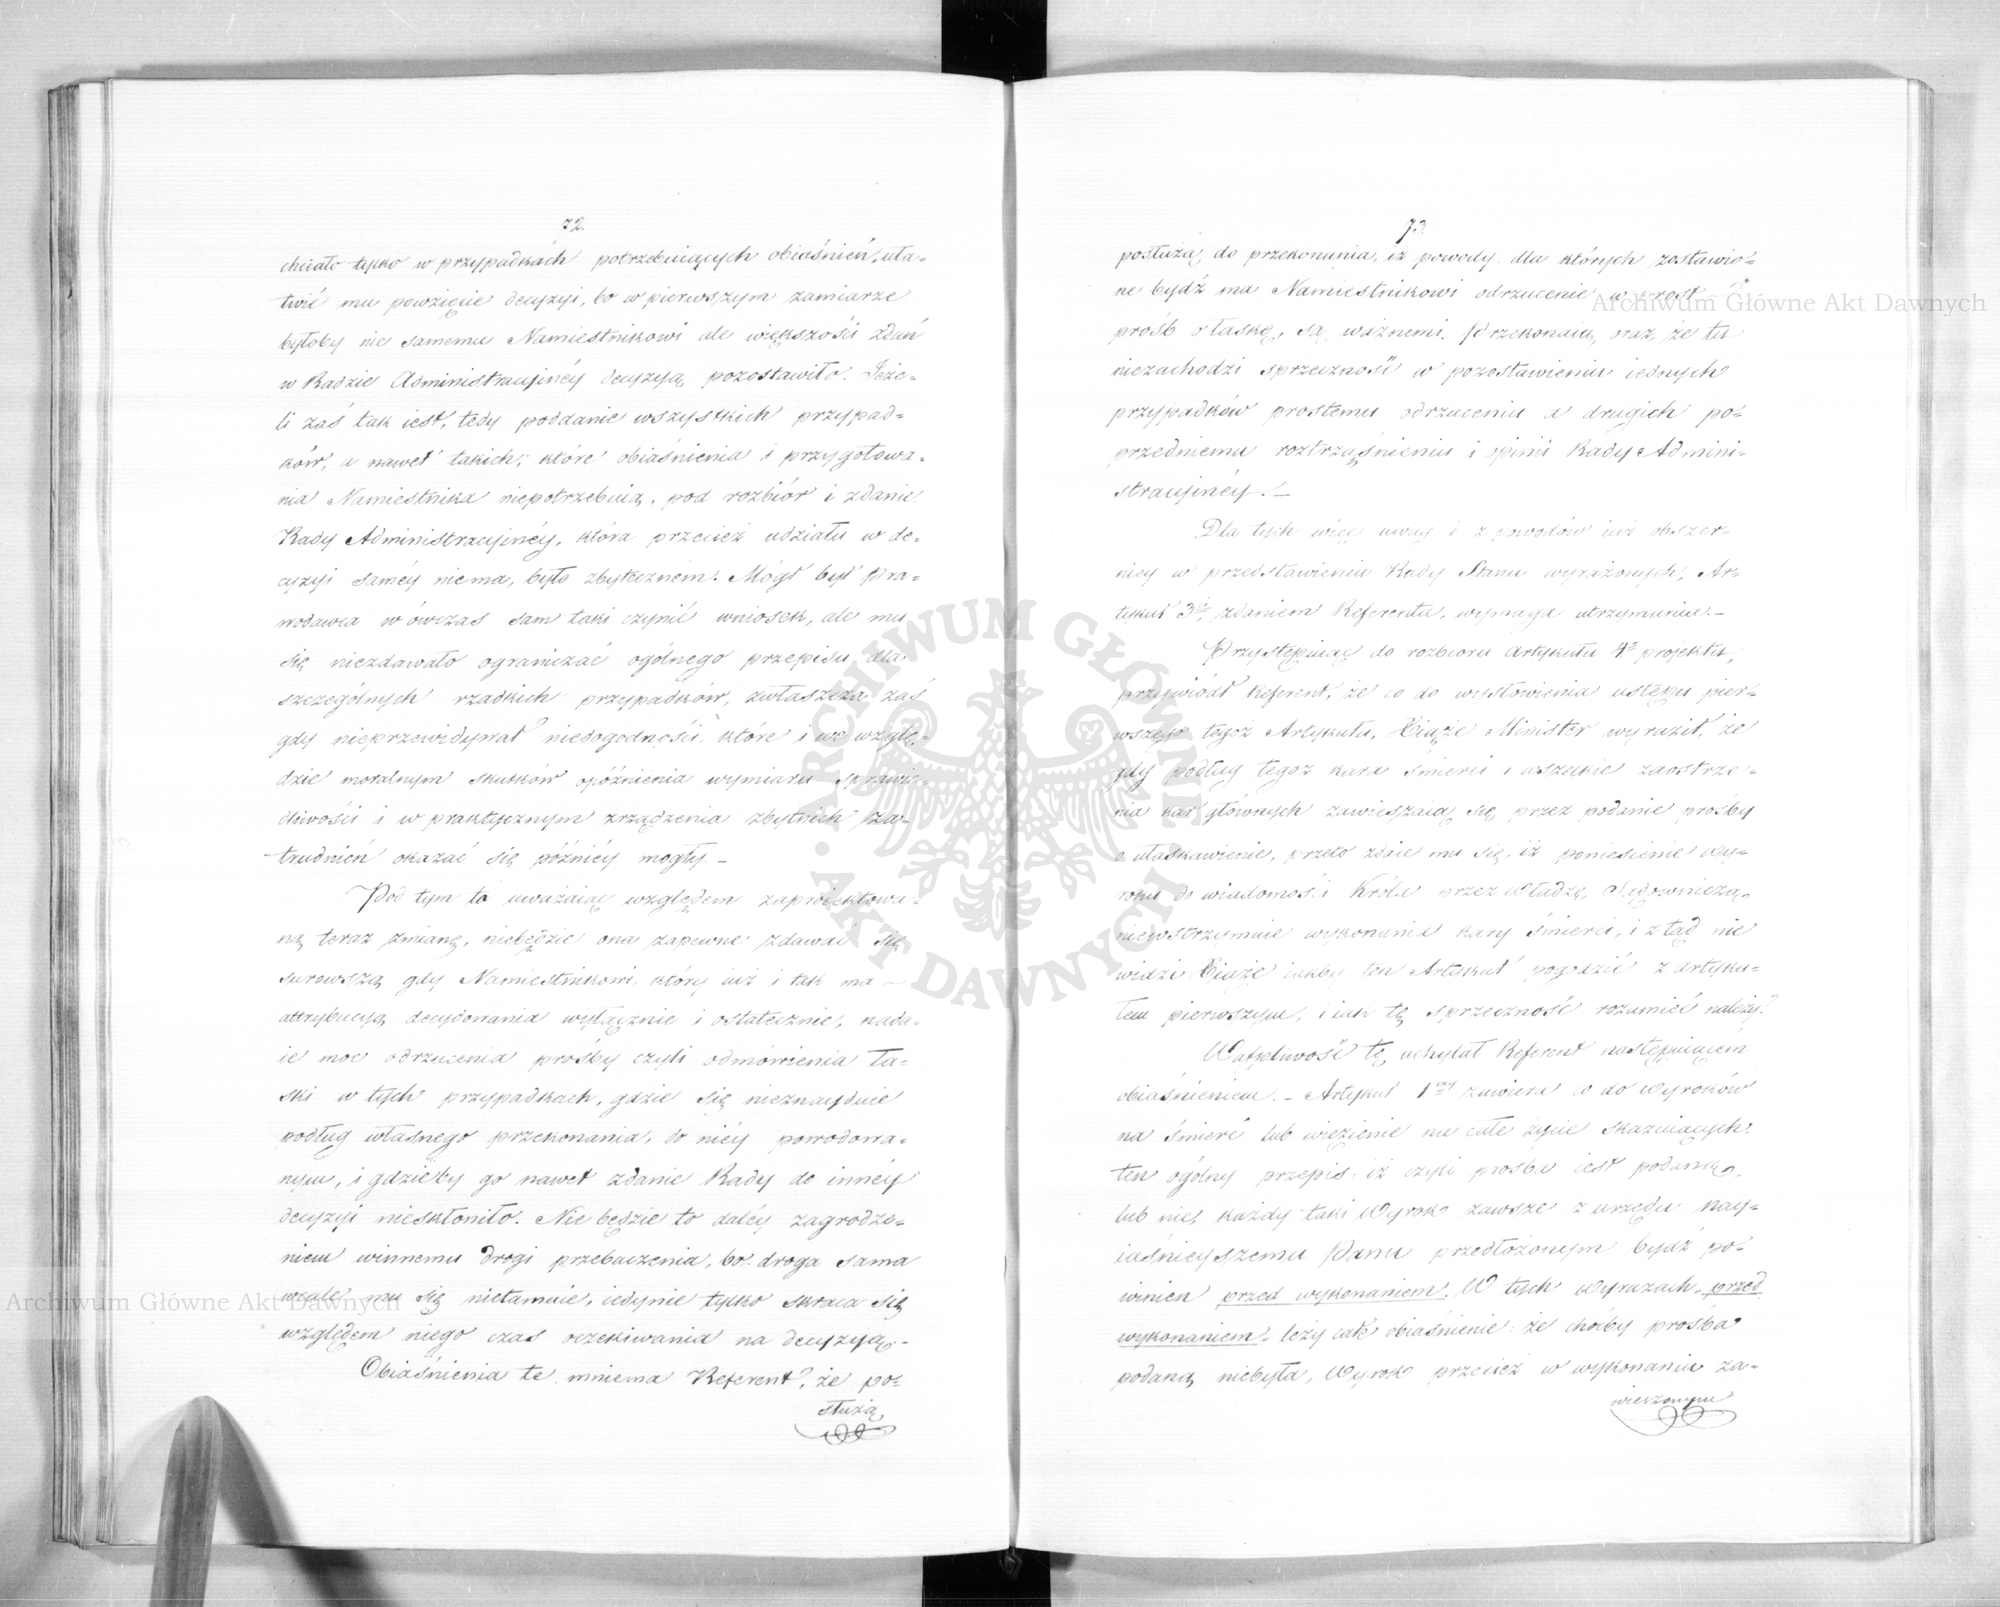 72.
chciało tylko w przypadkach potrzebuiących obiaśnień, uła-
twić mu powzięcie decyzyi, bo w pierwszym zamiarze
byłoby nie samemu Namiestnikowi ale większości zdań
w Radzie Administracyinéy decyzyą pozostawiło. Jeże-
li zaś tak iest, tedy poddanie wszystkich przypad-
ków, a nawet takich, które obiaśnienia i przygotowa-
nia Namiestnika niepotrzebuią, pod rozbiór i zdanie
Rady Administracyinéy, która przecież udziału w de-
cyzyi saméy niema, było zbyteczném. Mógł był Pra-
wodawca wówczas sam taki czynić wniosek, ale mu
się niezdawało ograniczać ogólnego przepisu dla
szczególnych rzadkich przypadków, zwłaszcza zaś
gdy nieprzewidywał niedogodności, które i we wzglę-
dzie moralnym skutków opóźnienia wymiaru sprawie-
dliwości i w praktycznym zrządzenia zbytnich za-
trudnień okazać się późniéy mogły. –
Pod tym to uważaiąc względem zaproiektowa-
ną teraz zmianę, niebędzie ona zapewne zdawać się
surowszą gdy Namiestnikowi, który iuż i tak ma –
attrybucyą decydowania wyłącznie i ostatecznie, nada-
ie moc odrzucenia prośby czyli odmówienia ła-
ski w tych przypadkach, gdzie się nieznayduie
podług własnego przekonania, do niéy powodowa-
nym, i gdzieby go nawet zdanie Rady do innéy
decyzyi nieskłoniło. Nie będzie to daléy zagrodze-
niem winnemu drogi przebaczenia, bo droga sama
wcale mu się nietamuie, iedynie tylko skraca się
względem niego czas oczekiwania na decyzyą. –
Obiaśnienia te, mniema Referent, że po-
służą
73.
posłużą do przekonania, iż powody, dla których zostawio-
ne bydź ma Namiestnikowi odrzucenie w prost
prośb o łaskę, są ważnemi. Przekonaią oraz, że tu
niezachodzi sprzeczność w pozostawieniu iednych
przypadków prostemu odrzuceniu a drugich po-
przedniemu roztrząśnieniu i opinii Rady Admini-
stracyinéy. –
Dla tych więc uwag i z powodów iuż obszer-
niéy w przedstawieniu Rady Stanu wyrażonych, Ar-
tykuł 3ci zdaniem Referenta, wymaga utrzymania. –
Przystępuiąc do rozbioru Artykułu 4o projektu,
przywiódł Referent, że co do wysłowienia ustępu pier-
wszego tegoż Artykułu, Xiąże Minister wyraził, że
gdy podług tegoż kara śmierci i wszelkie zaostrze-
nia kar głównych zawieszaią się przez podanie prośby
o ułaskawienie, przeto zdaie mu się, iż poniesienie wy-
roku do wiadomości Króla przez władzę Sądowniczą,
niewstrzymuie wykonania kary śmierci, i ztąd nie
widzi Xiąże iakby ten Artykuł pogodzić z artyku-
łem pierwszym, i iak tę sprzeczność rozumieć należy?
Wątpliwość tę uchylał Referent następuiącem
obiaśnieniem. – Artykuł 1wszy zawiera co do Wyroków
na śmierć lub więzienie na całe życie skazuiących
ten ogólny przepis: iż czyli prośba iest podaną,
lub nie, każdy taki Wyrok zawsze z urzędu Nay-
iaśnieyszemu Panu przedłożonym bydź po-
winien przed wykonaniem. W tych wyrazach, przed
wykonaniem, leży całe obiaśnienie: że choćby prośba
podaną niebyła, Wyrok przecież w wykonaniu za-
wieszonym
Archiwum Główne Akt Dawnych
Archiwum Główne Akt Dawnych
ARCHIWUM GŁÓWNE • AKT DAWNYCH •